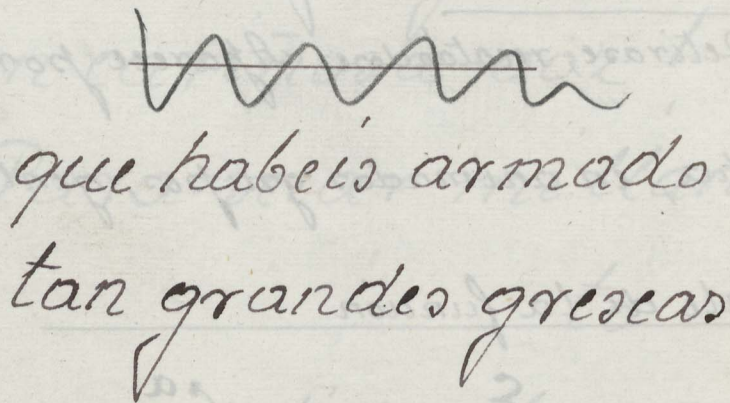 que habeis armado
tan grandes grescas